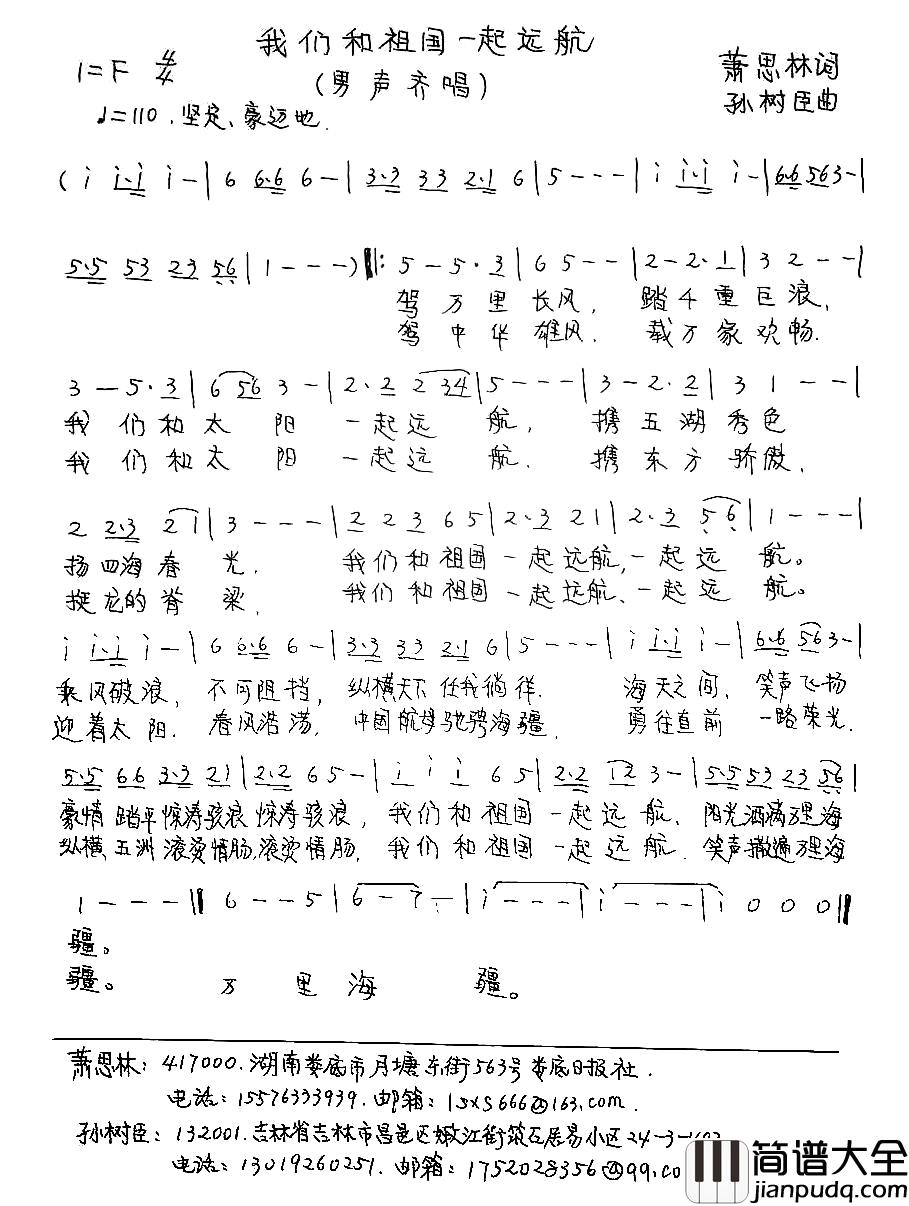 我们和祖国一起远航
1=F 4/4
(男声齐唱)
萧思林词
孙树臣曲
♩=110. 坚定、豪迈地.
( i i·i i - | 6 6·6 6 - | 3·3 33 2·1 6 | 5 - - - | i i·i i - | 6·6 563 - |
5·5 53 23 56 | 1 - - - ) ‖: 5 - 5·3 | 6 5 - - | 2 - 2·1 | 3 2 - - |
驾万里长风, 踏千重巨浪,
驾中华雄风. 载万家欢畅.
3 - 5·3 | 6 56 3 - | 2·2 2 34 | 5 - - - | 3 - 2·2 | 3 1 - - |
我们和太阳一起远航, 携五湖秀色
我们和太阳一起远航. 携东方骄傲,
2 2·3 2 1 | 3 - - - | 2 2 3 6 5 | 2·3 2 1 | 2·3 56 | 1 - - - |
扬四海春光. 我们和祖国一起远航,一起远航。
挺龙的脊梁, 我们和祖国一起远航、一起远航。
i i·i i - | 6 6·6 6 - | 3·3 33 2·1 6 | 5 - - - | i i·i i - | 6·6 563 - |
乘风破浪, 不可阻挡, 纵横天下任我徜徉. 海天之间, 笑声飞扬
迎着太阳. 春风浩荡, 中国航母驰骋海疆. 勇往直前 一路荣光.
5·5 66 3·3 21 | 2·2 6 5 - | i i i 6 5 | 2·2 12 3 - | 5·5 53 23 56 |
豪情踏平惊涛骇浪惊涛骇浪, 我们和祖国一起远航、阳光洒满万里海
纵横五洲滚烫情肠,滚烫情肠, 我们和祖国一起远航. 笑声撒遍万里海
1 - - - ‖ 6 - - 5 | 6 - 7 - | i - - - | i - - - | i 0 0 0 ‖
疆。
疆。 万里海疆。
萧思林: 417000.湖南娄底市月塘东街563号娄底日报社.
电话: 15576333939.邮箱:lsxs666@163.com.
孙树臣: 132001.吉林省吉林市昌邑区嫩江街筑石居易小区24-3-
电话: 13019260251.邮箱:1752028356@qq.co
简谱大全
jianpudq.com